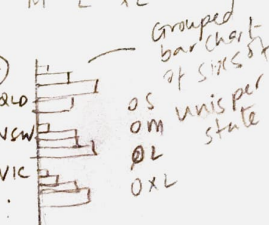 M L XL
Grouped
bar chart
of sizes of
unis per
state
QLD
NSW
VIC
O S
O M
O L
O XL